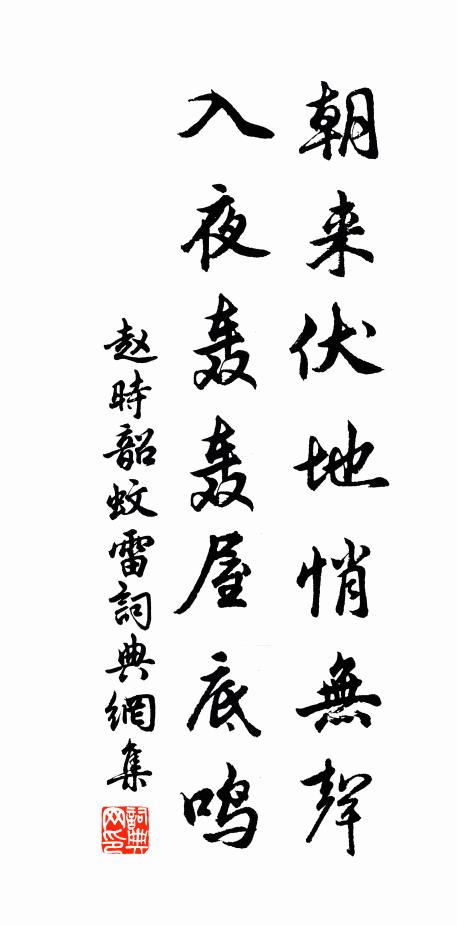 朝来伏地悄無聲
入夜轰轰屋底鸣
赵時韶蚊雷詞典網集
詞典网印